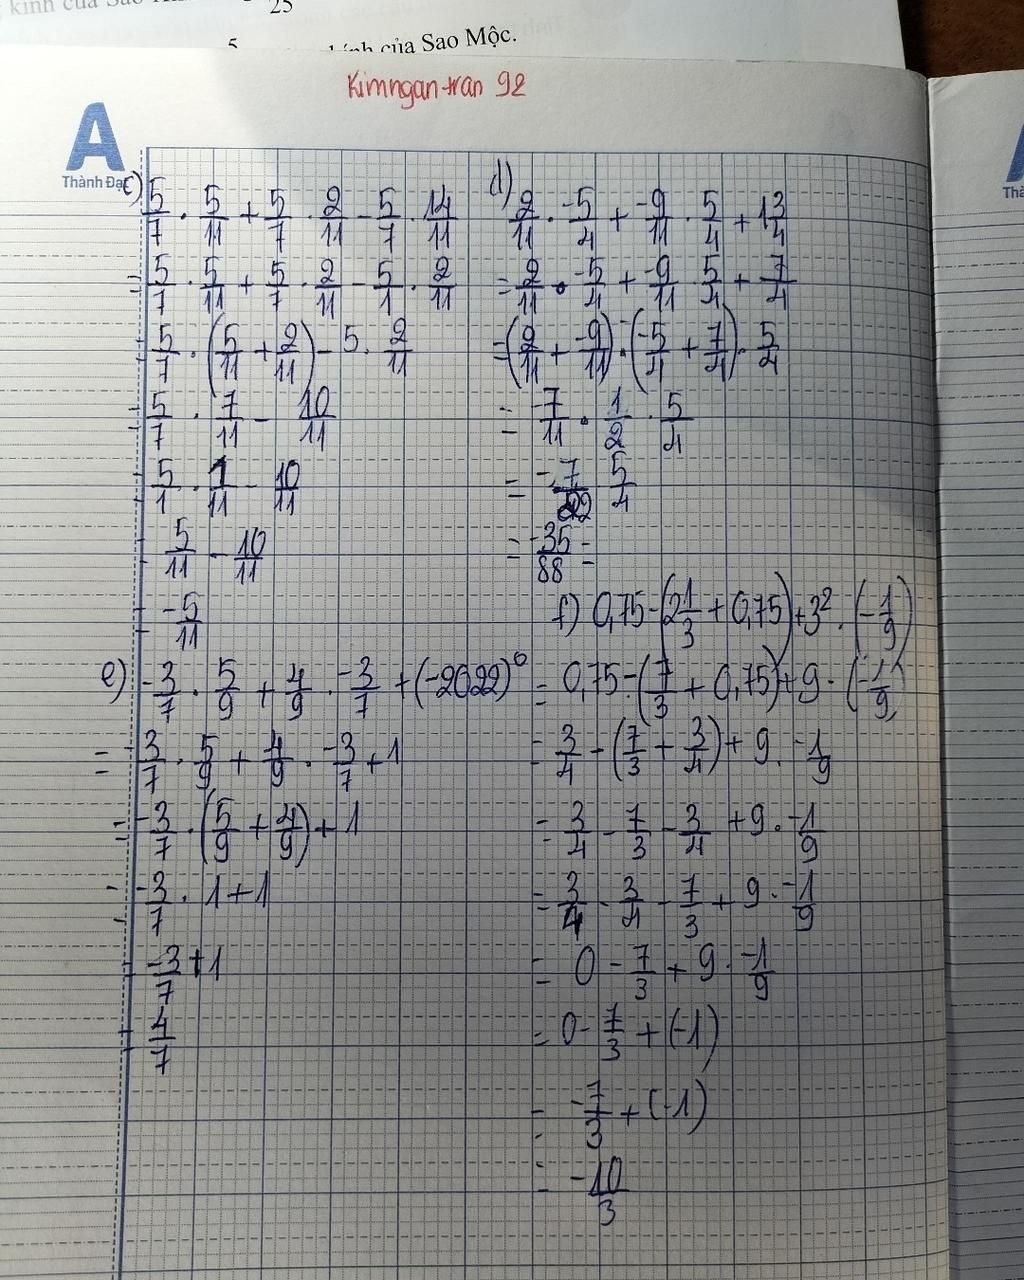 kính của Sao
25
5
kính của Sao Mộc.
Kimngan tran 92
A
Thành Đạt
c) 5/7 . 5/11 + 5/7 . 2/11 - 5/7 . 14/11
= 5/7 . 5/11 + 5/7 . 2/11 - 5/1 . 2/11
5/7 . (5/11 + 2/11) - 5 . 2/11
5/7 . 7/11 - 10/11
5/1 . 1/11 - 10/11
5/11 - 10/11
-5/11
d) 2/11 . -5/4 + -9/11 . 5/4 + 1 3/4
= 2/11 . -5/4 + -9/11 . 5/4 + 7/4
= (2/11 + -9/11) . (-5/4 + 7/4) . 5/4
= -7/11 . 1/2 . 5/4
= -7/22 . 5/4
= -35/88 =
e) -3/7 . 5/9 + 4/9 . -3/7 + (-2022)⁰
= -3/7 . 5/9 + 4/9 . -3/7 + 1
= -3/7 . (5/9 + 4/9) + 1
= -3/7 . 1 + 1
-3/7 + 1
= 4/7
f) 0,75 - (2 1/3 + 0,75) + 3² . (-1/9)
= 0,75 - (7/3 + 0,75) + 9 . (-1/9)
= 3/4 - (7/3 + 3/4) + 9 . -1/9
= 3/4 - 7/3 - 3/4 + 9 . -1/9
= 3/4 - 3/4 - 7/3 + 9 . -1/9
= 0 - 7/3 + 9 . -1/9
= 0 - 7/3 + (-1)
= -7/3 + (-1)
= -10/3